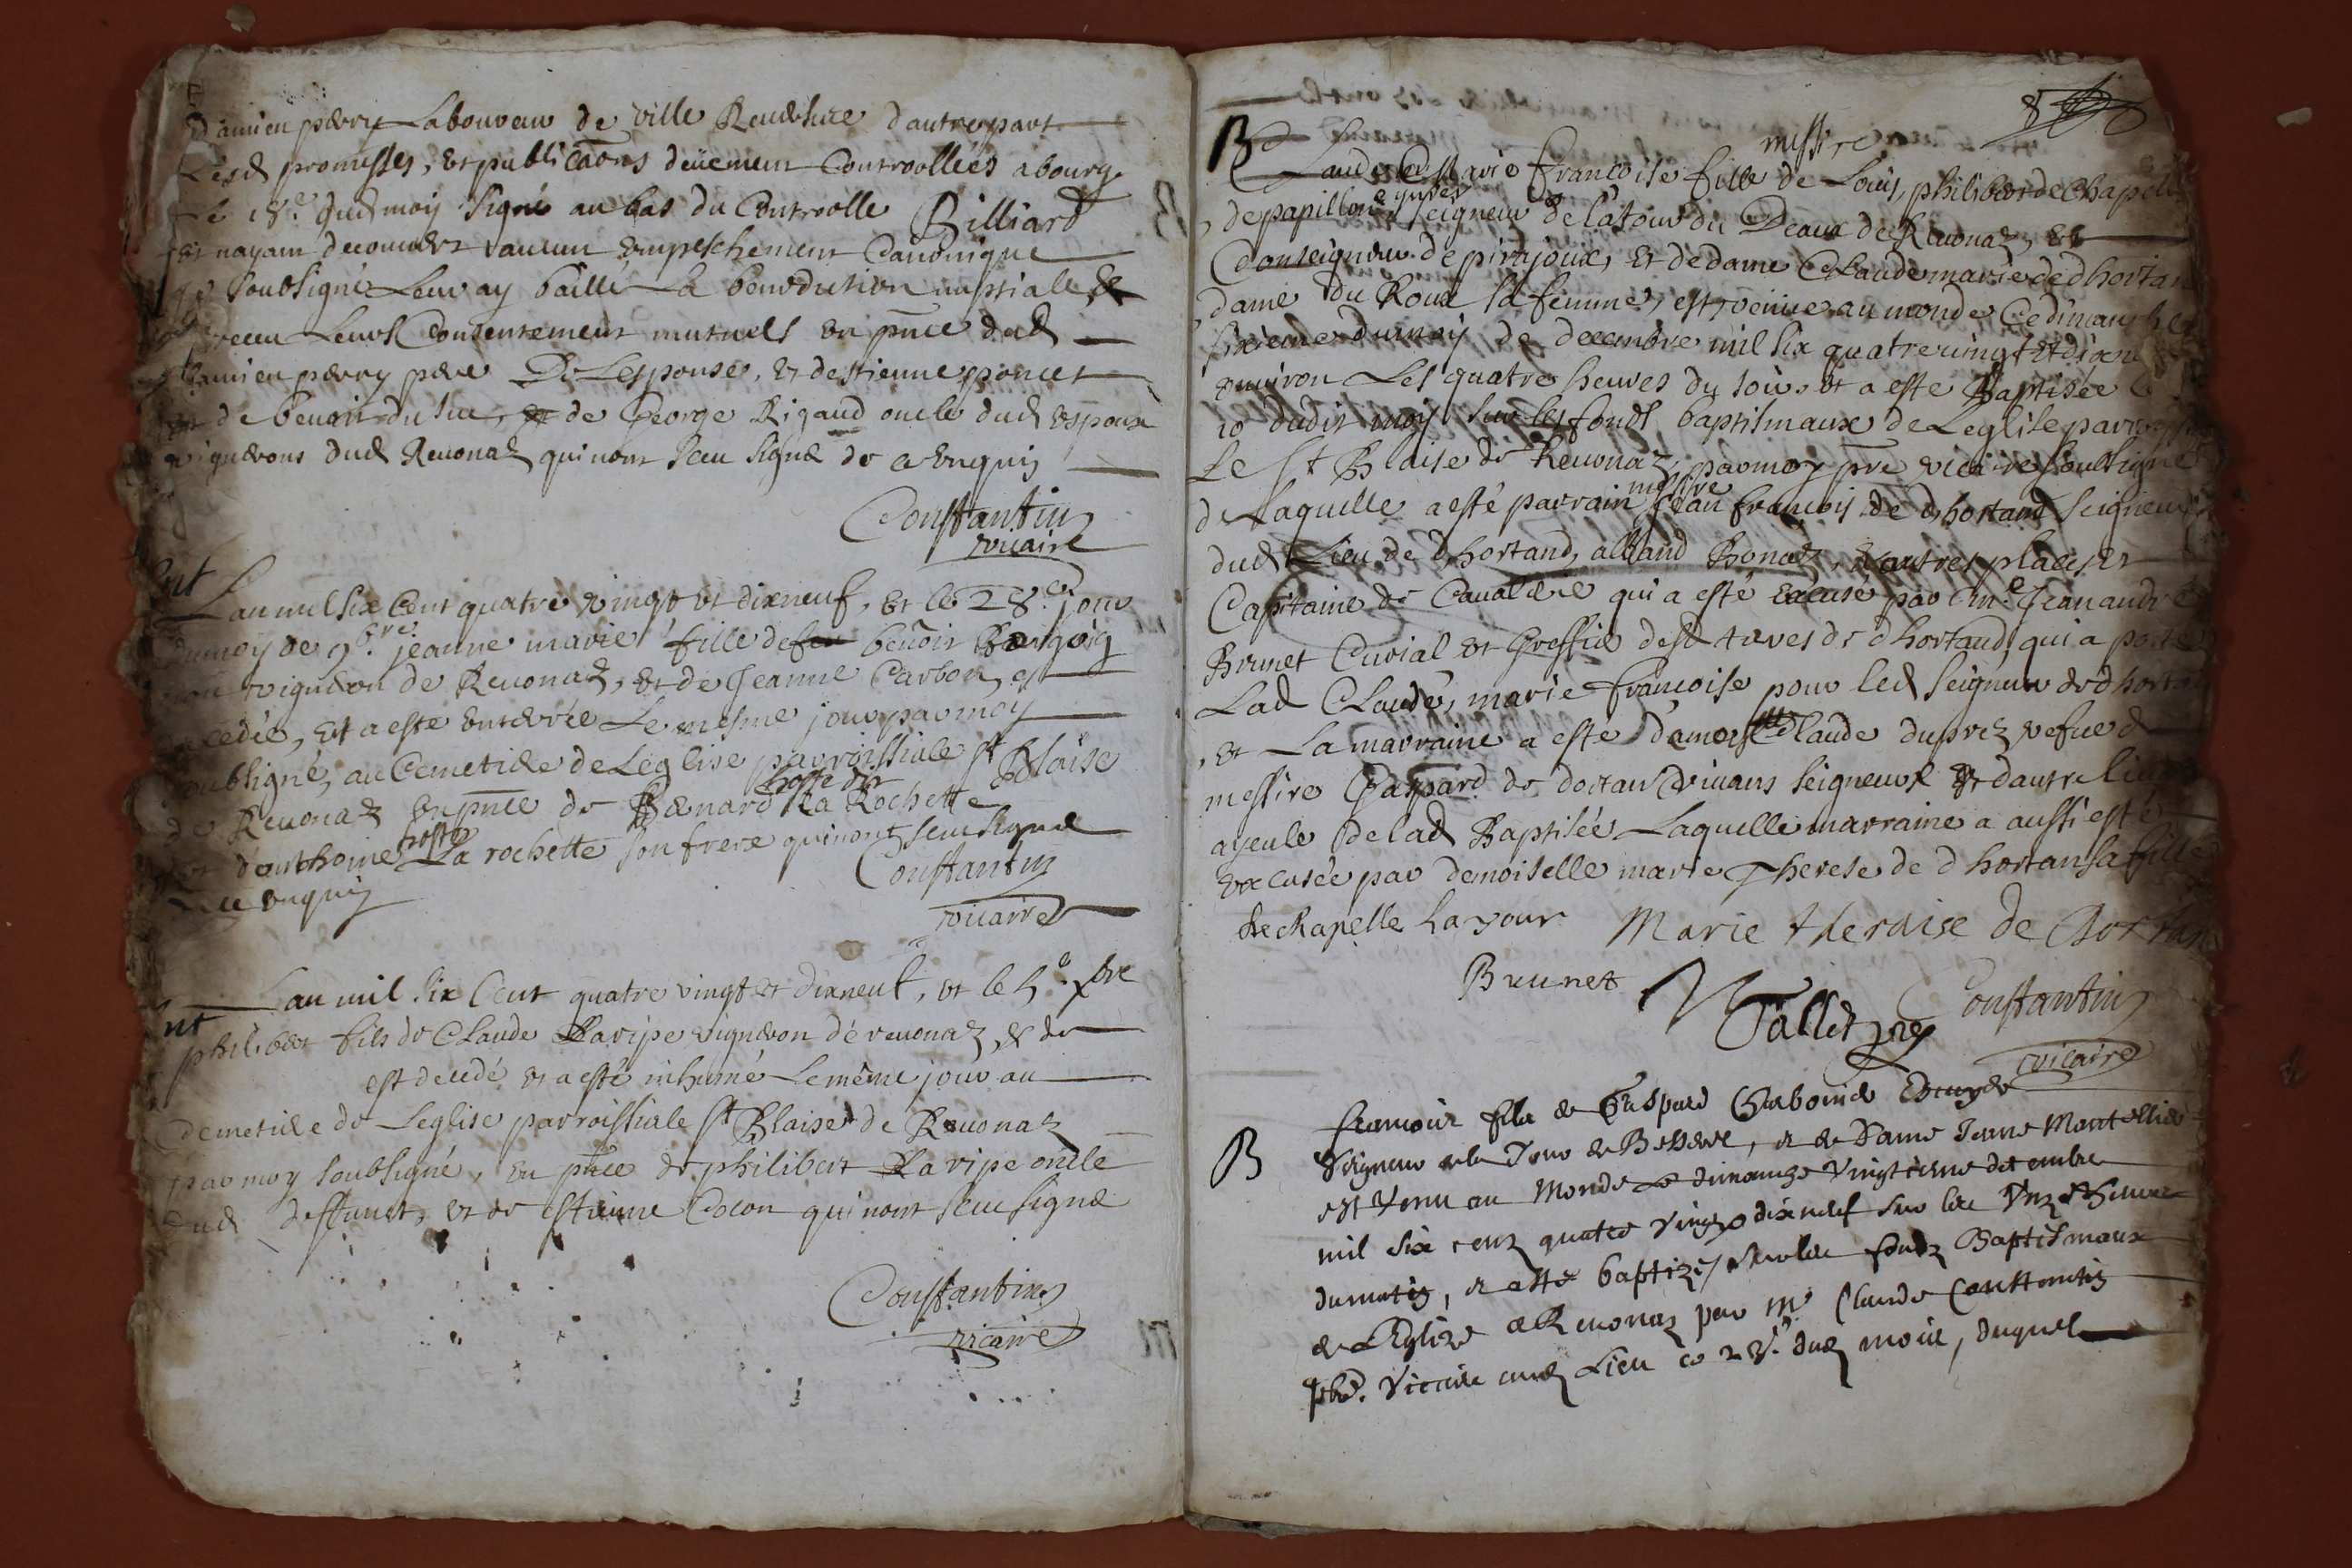 Damien perry Laboureur de ville Reuersure dautrepart
Lesd promesses, et publicãons deüement Controollées a bourg
Le 18.e dud moy Signé au bas du Controolle Billiard
et nayant decouuert aucun empeschement Canonique
je Soubsigné Leur ay baillé La benediction nuptiale &
receu Leurs Consentement mutuels en pñce dud
Damien perry pere De Lespouse, et destienne poncet
et de benoit du suc, et de George Rigaud oncle dud espoux
vignerons dud Reuonaz qui nont sceu signé de ce enquis
Constantin
vicaire
ent
Lan mil six Cent quatre vingt et dixneuf, et le 28.e jour
du moy de 9.bre jeanne marie fille de feu benoit
vigneron de Reuonaz, et de Jeanne Carbon est
decedée, et a esté enterrée Le mesme jour par moy
soubsigné, au Cemetiere de Leglise parroissiale St Blaise
de Reuonaz en pñce de Bernard hoste dit La Rochette
et danthoine hoste La rochette son frere qui nont sceu signé
de ce enquis
Constantin
vicaire
ent
Lan mil six Cent quatre vingt et dixneuf, et le 5.e xbre
philibert fils de Claude Laripe vigneron de reuonaz & de
est decedé et a esté inhumé Le même jour au
Cemetiere de Leglise parroissiale St Blaise de Reuonaz
par moy soubsigné, en pñce de philibert Laripe oncle
dud deffunct, et de Estienne Cocon qui nont sceu signé
Constantin
vicaire
8
B
messire
Claude Marie Francoise fille de Louis, philibert de Chapelle
de papillon equyer seigneur de la tour du Deaux de Reuonaz, et
Conseigneur de pirajoux, et de dame Claude marie de dhortan
dame du Roux sa femme, est venue au monde Ce dimanche
sixieme du moy de decembre mil six quatre vingt et dixneuf
enuiron Les quatre heures du soir et a esté Baptisée le
10 dudit moy sur les fonds baptismaux de Leglise parroissiale
de St Blaise de Reuonaz, par moy pre vicaire soubsigné
de Laquelle a esté parrain messire Jean francois de dhortand Seigneur
dud Lieu de dhortand, Bonaz, & autres places et
Capitaine de Caualerie qui a esté excusé par me Jean andre
Brunet Curial et Greffier desd terres de dhortand, qui a porté
Lad Claude, marie francoise pour led seigneur de dhortan
et La marraine a esté damoiselle Claude duprez vefue de
messire Gaspard de dortan Viuans seigneur dud et dautre lieux
ayeule de lad Baptisée Laquelle marraine a aussi esté
excusée par demoiselle marie Therese de dhortan sa fille
De chapelle La tour Marie theraise de Dortan
Brunet
Constantin
vicaire
B
francois fils de Gaspard Charbonnier Escuyer
Seigneur de la Tour de Besserel, et de Dame Jeanne Montellier
est venu au Monde Le dimanche vingtieme decembre
mil six cenz quatre vingt dixneuf sur les unze heures
du matin, et esté baptizé sur les fondz Baptismaux
de LEglize de Reuonaz par Mre Claude Constantin
pbre. Vicaire aud Lieu ce 28e dud mois, duquel